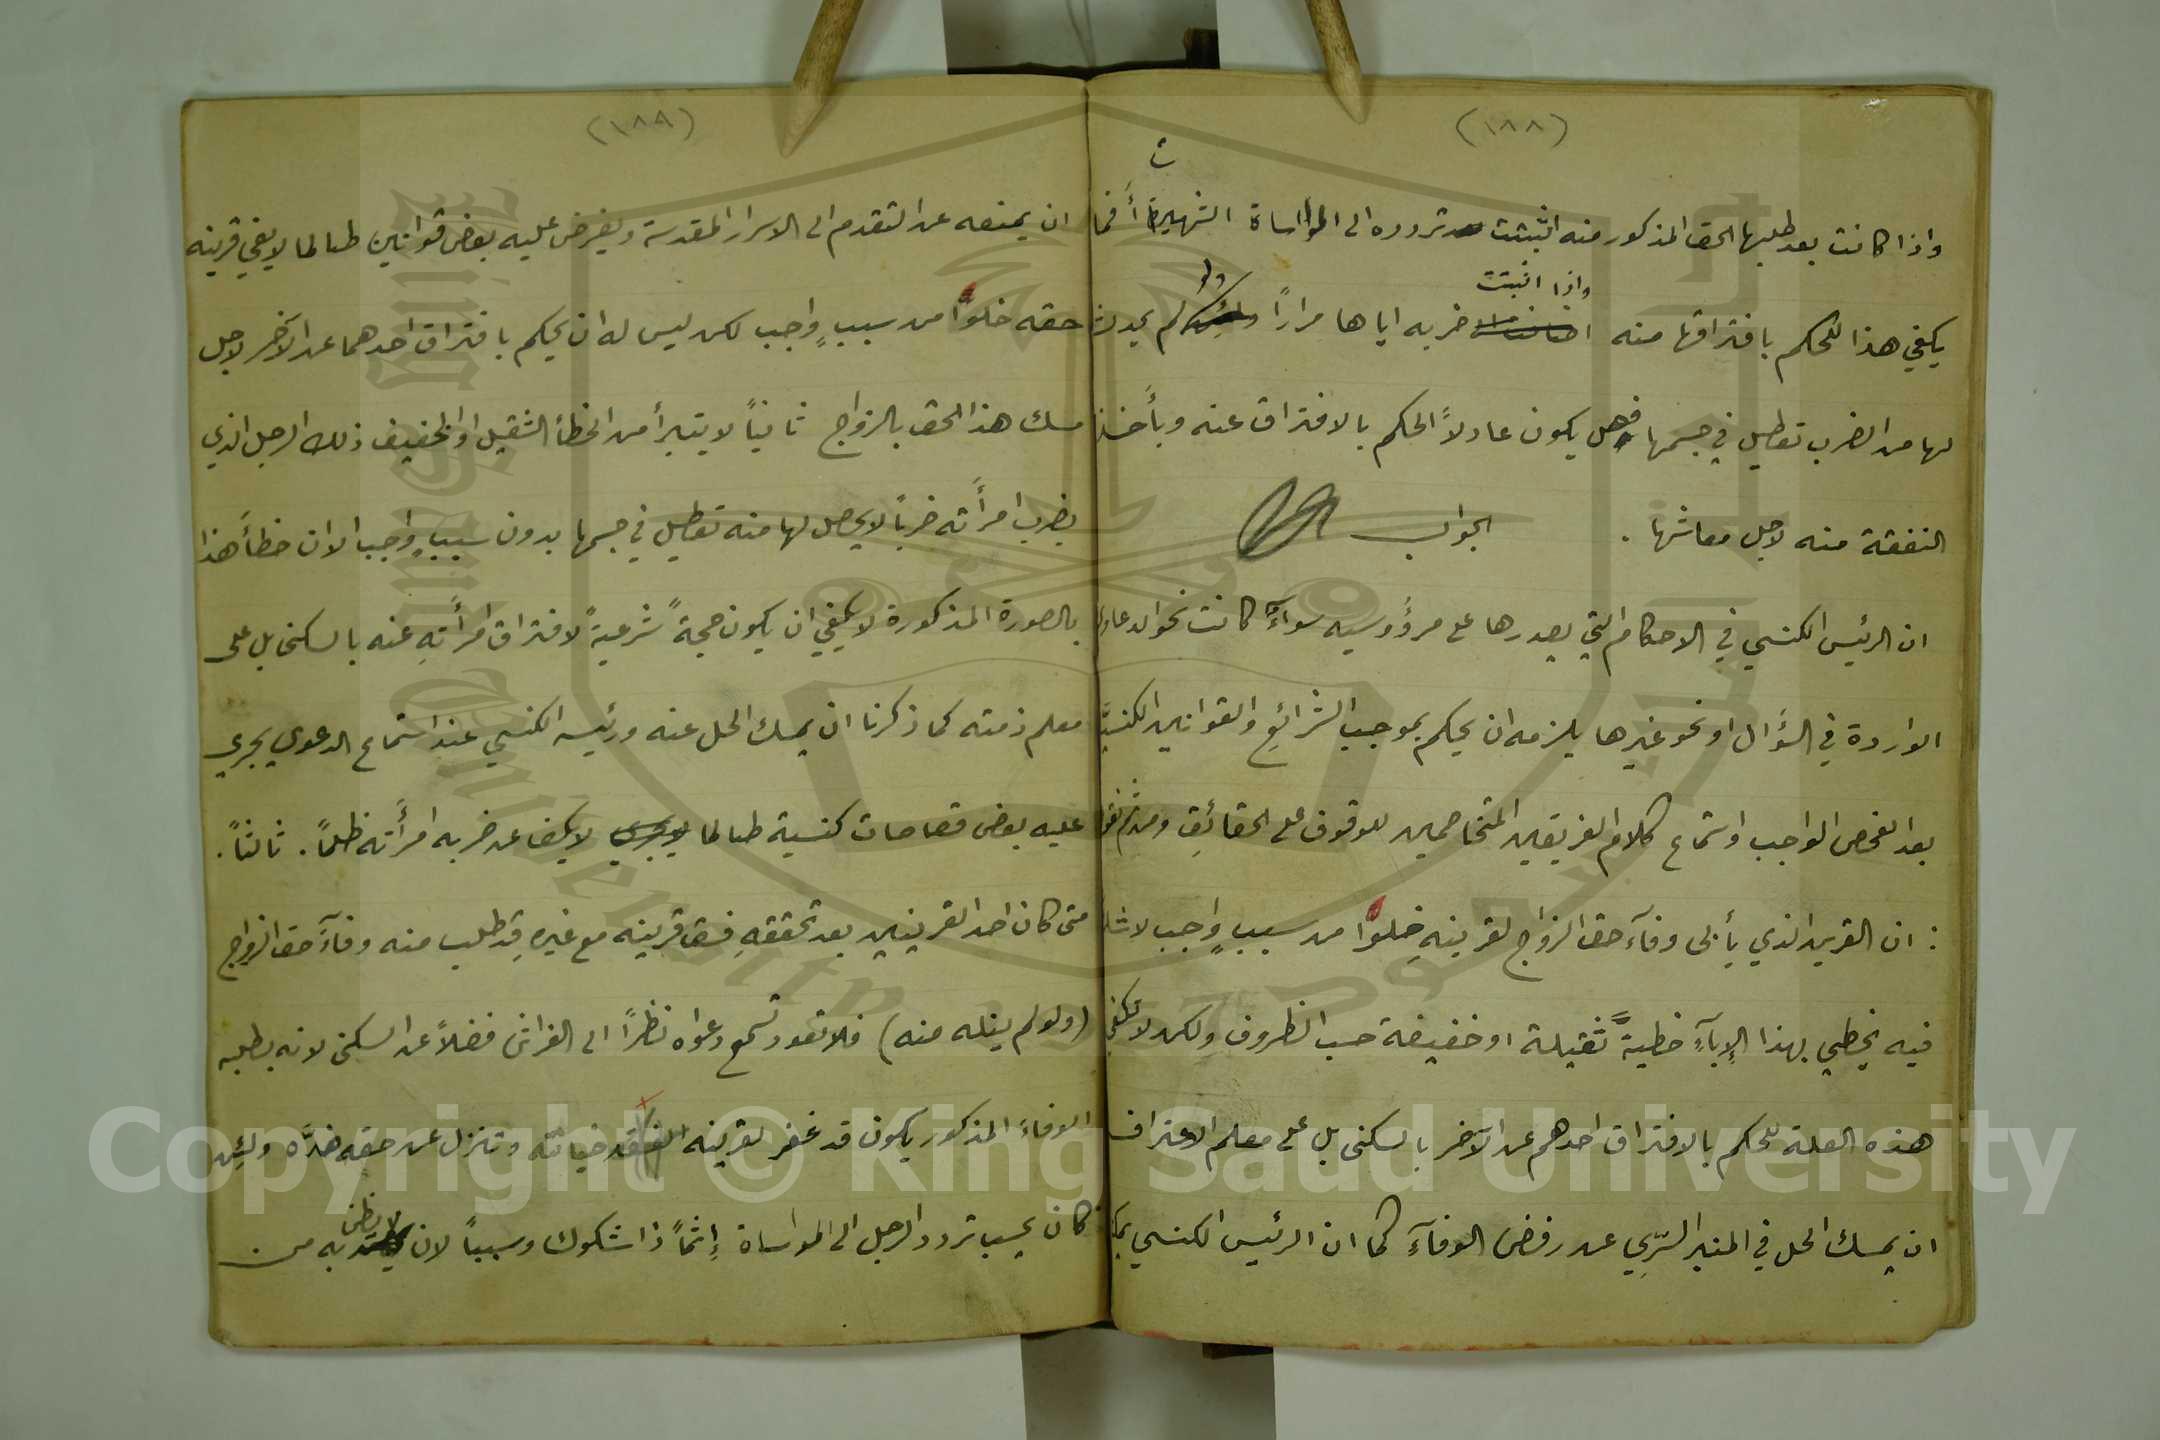 (١٨٨)
واذا كانت بعد طلبها الحق المذكور منه اثبتت تردده الى المواساة الشهيرات أفما
يكفي هذا للحكم بافتراقها منه واذا اثبتت ضربه اياها مرارًا ولو لم يحدث
لها من الضرب تعطيل في جسمها فهل يكون عادلاً الحكم بالافتراق عنه وبأخذ
النفقة منه لاجل معاشها . الجواب
ان الرئيس الكنسي في الاحكام التي يصدرها على مرؤوسيه سوآءً كانت نحو الدعاوي
الواردة في السؤال او نحو غيرها يلزمه ان يحكم بموجب الشرائع والقوانين الكنسية
بعد الفحص الواجب واستماع كلام الفريقين المتخاصمين للوقوف على الحقائق ومن ثم نقول
: ان القرين الذي يأبى وفآء حق الزواج لقرينهِ خلوًا من سببٍ واجب لا شك
فيه يخطي بهذا الإبآءِ خطيةً ثقيلة او خفيفة حسب الظروف ولكن لا تكفي
هذه العلة للحكم بالافتراق احدهم عن الآخر بالسكنى بل على معلم الاعتراف
ان يمسك الحل في المنبر السّرِي عمن رفض الوفآءِ كما ان الرئيس الكنسي يمكنه
(١٨٩)
ان يمنعه عن التقدم الى الاسرار المقدسة ويفرض عليه بعض قوانين طالما لا يفي قرينه
حقه خلوًا من سببٍ واجب لكن ليس له ان يحكم بافتراق احدهما عن الآخر لاجل
مسك هذا الحق بالزواج ثانيًا لا يتبرأ من الخطأ الثقيل او الخفيف ذلك الرجل الذي
يضرب امرأته ضربًا لا يحصل لها منه تعطيل في جسمها بدون سببٍ واجب الا ان خطأ هذا
بالصورة المذكورة لا يكفي ان يكون حجةً شرعيةً لافتراق امرأتهِ عنه بالسكنى بل على
معلم ذمته كما ذكرنا ان يمسك الحل عنه ورئيسه الكنسي عند استماع الدعوى يجري
عليه بعض قصاصات كنسية طالما لا يكف عن ضربه امرأته ظلمًا . ثالثًا .
متى كان احد القرينين بعد تحققهِ فسق قرينه مع غيرهِ قد طلب منه وفآء حق الزواج
(ولو لم ينله منه) فلا تعود تسمع دعواه نظرًا الى الفراش فضلاً عن السكنى لانه بطلبه
الوفاء المذكور يكون قد غفر لقرينه خيانته وتنزل عن حقه ضدَّه ولئِن
كان يحسب تردد الرجل الى المواساة إثمًا ذا شكوك وسببًا لان لا يظن به من